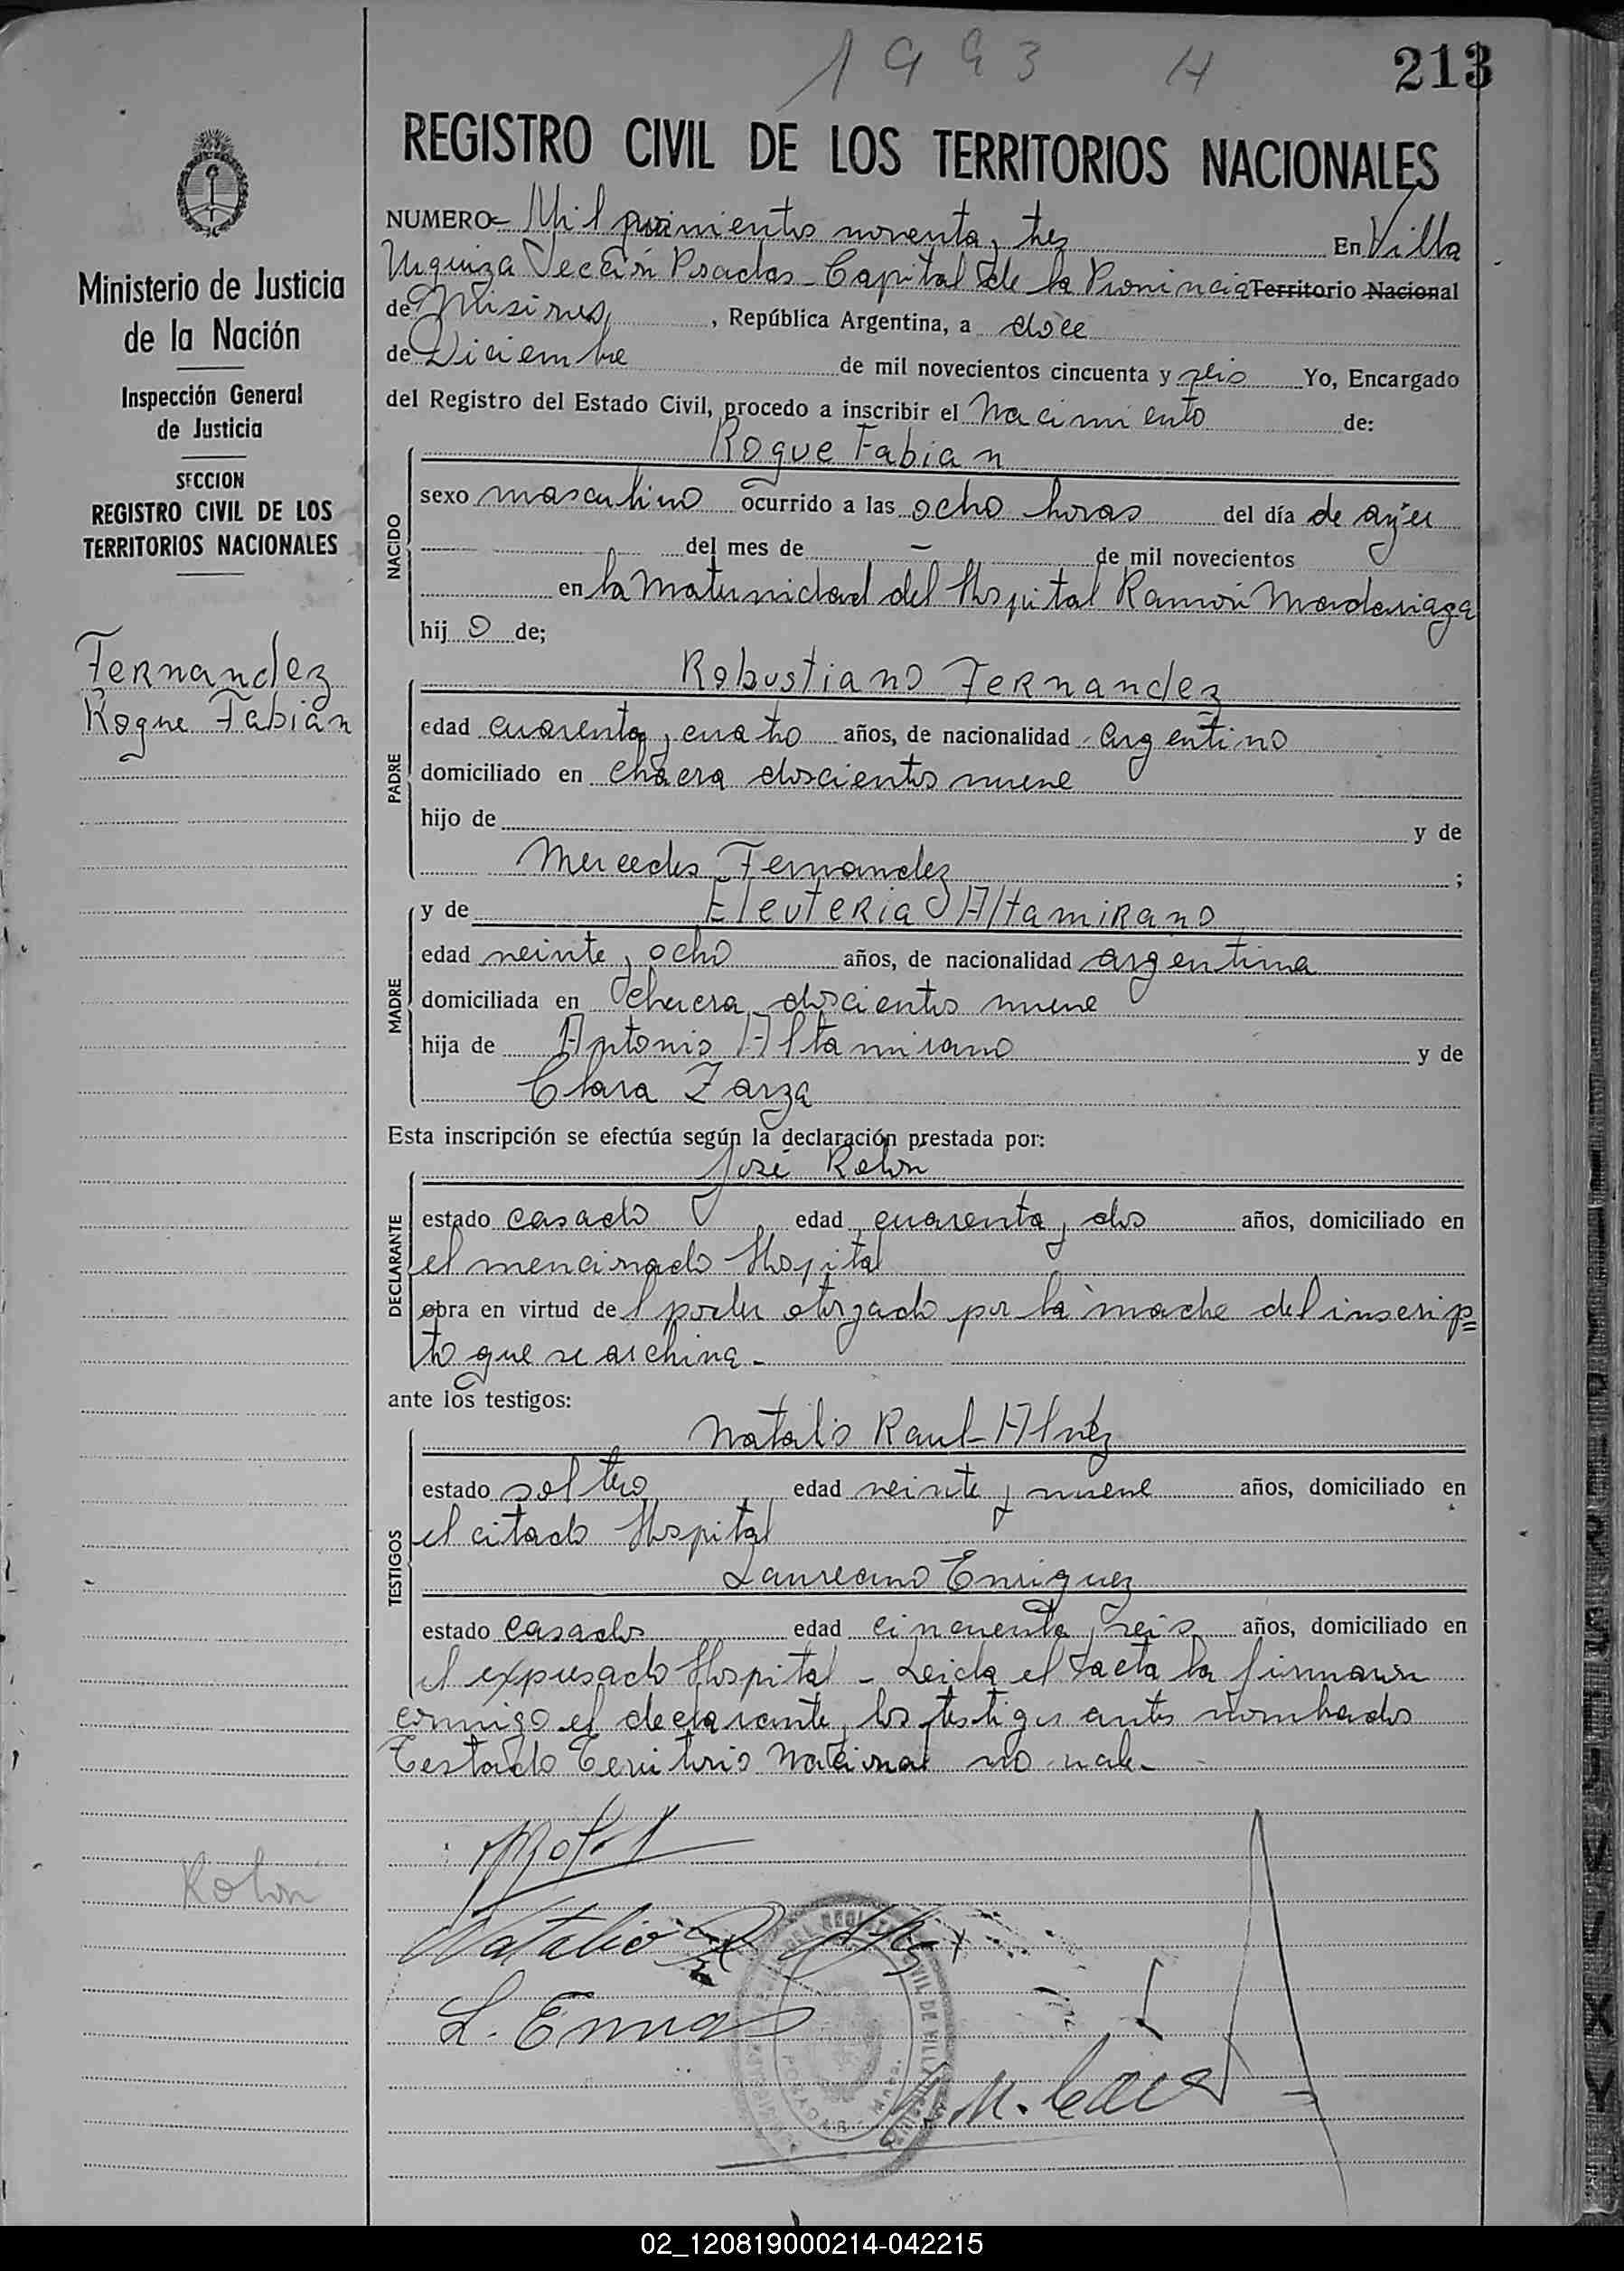 1993 H
213
REGISTRO CIVIL DE LOS TERRITORIOS NACIONALES
Ministerio de Justicia
de la Nación
Inspección General
de Justicia
SECCION
REGISTRO CIVIL DE LOS
TERRITORIOS NACIONALES
Fernandez
Roque Fabián
Rolon
NUMERO Mil novecientos noventa y tres En Villa
Urquiza Sección Posadas - Capital de la Provincia Territorio Nacional
de Misiones, República Argentina, a doce
de Diciembre de mil novecientos cincuenta y seis Yo, Encargado
del Registro del Estado Civil, procedo a inscribir el nacimiento de:
Roque Fabian
NACIDO
sexo masculino ocurrido a las ocho horas del día de ayer
del mes de - de mil novecientos
en la Maternidad del Hospital Ramón Madariaga
hijo de;
Robustiano Fernandez
PADRE
edad cuarenta y cuatro años, de nacionalidad argentino
domiciliado en chacra doscientos nueve
hijo de y de
Mercedes Fernandez ;
y de Eleuteria Altamirano
MADRE
edad veinte y ocho años, de nacionalidad argentina
domiciliada en chacra doscientos nueve
hija de Antonio Altamirano y de
Clara Zarza
Esta inscripción se efectúa según la declaración prestada por:
José Rolon
DECLARANTE
estado casado edad cuarenta y dos años, domiciliado en
el mencionado Hospital
obra en virtud del poder otorgado por la madre del inscrip=
to que se archiva.-
ante los testigos:
Natalio Raul
TESTIGOS
estado soltero edad veinte y nueve años, domiciliado en
el citado Hospital
Laureano Enriquez
estado casado edad cincuenta y seis años, domiciliado en
el expresado Hospital - Leida el acta la firmaron
conmigo el declarante y los testigos antes nombrados
Testado Territorio Nacional no vale.-
Natalio R
L. Enriq
02_120819000214-042215